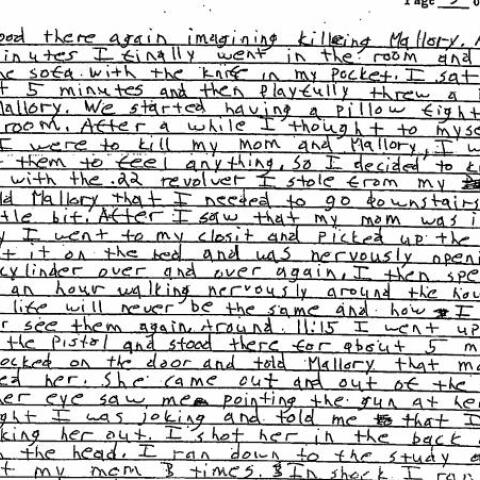 Page 3 o
ood there again imagining killeing Mallory. A
inutes I finally went in the room and
he sofa with the knife in my pocket. I sat
t 5 minutes and then playfully threw a
Mallory. We started having a pillow fight
room. After a while I thought to myse
I were to kill my mom and Mallory, I w
them to feel anything, so I decided to k
with the .22 revolver I stole from my
ld Mallory that I needed to go downstairs
tle bit. After I saw that my mom was i
y I went to my closit and picked up the
t it on the bed and was nervously openi
cylinder over and over again. I then spe
an hour walking nervously around the hou
life will never be the same and how I
r see them again. Around 11:15 I went up
the pistol and stood there for about 5 m
ocked on the door and told Mallory that mo
ed her. She came out and out of the
her eye saw me pointing the gun at he
ght I was joking and told me that I
king her out. I shot her in the back o
n the head. I ran down to the study a
t my mom 3 times. In shock I ran